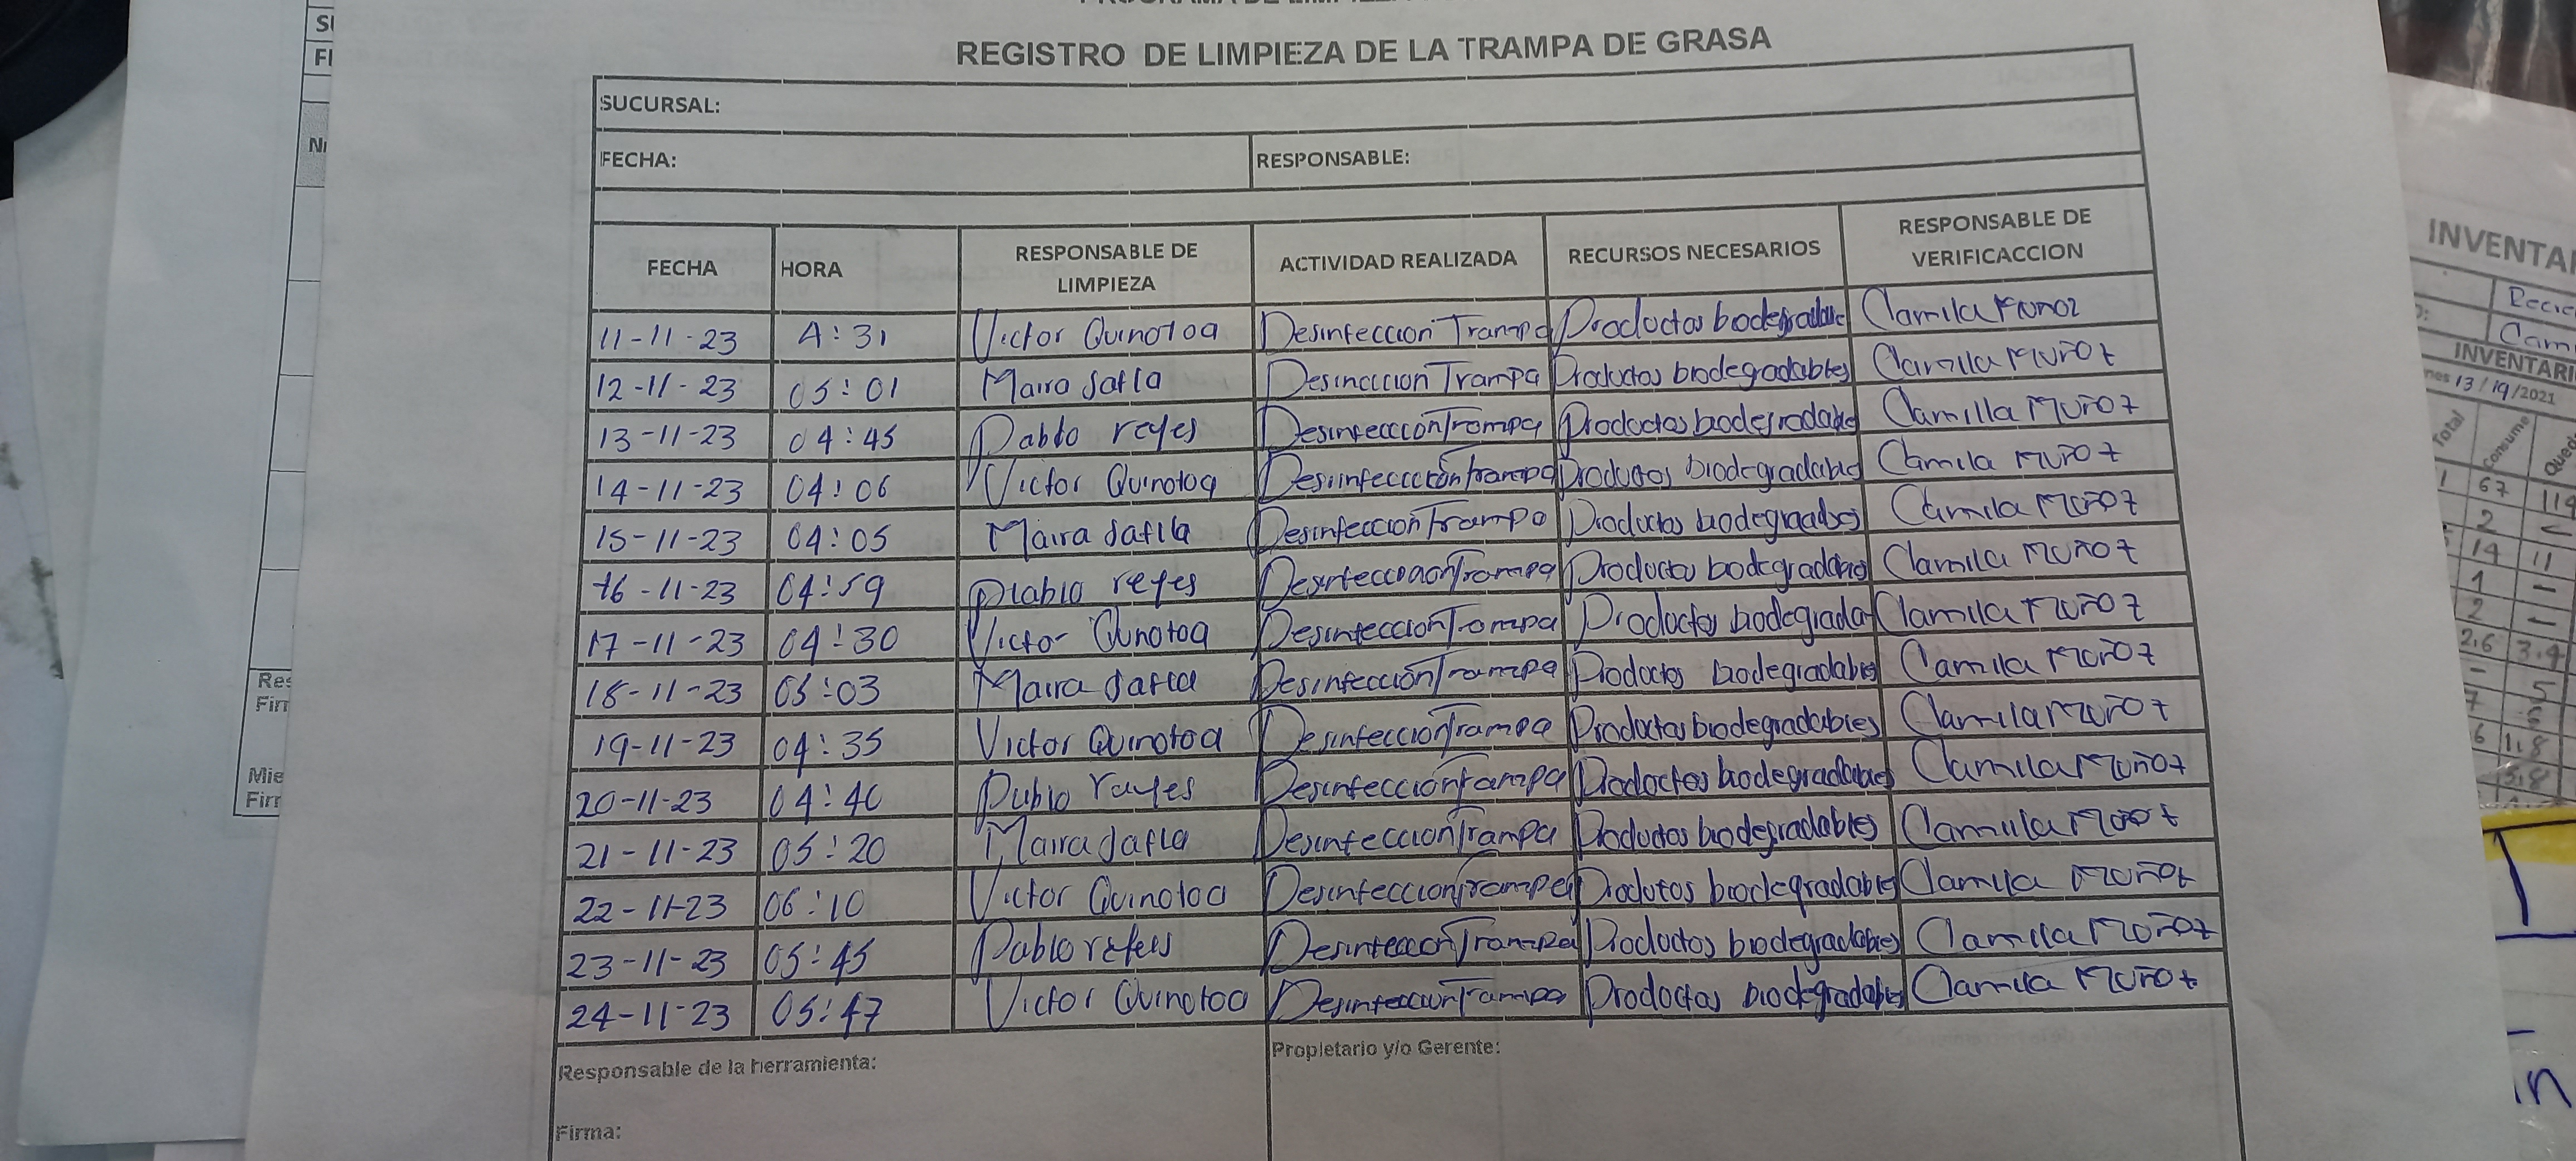 REGISTRO DE LIMPIEZA DE LA TRAMPA DE GRASA
SUCURSAL:
FECHA: RESPONSABLE:
FECHA HORA RESPONSABLE DE LIMPIEZA ACTIVIDAD REALIZADA RECURSOS NECESARIOS RESPONSABLE DE VERIFICACCION
11-11-23 4:31 Victor Quinotoa Desinfeccion Trampa Productos biodegradable Camila Muñoz
12-11-23 05:01 Maira safla Desinccion Trampa Productos biodegradables Camila Muñoz
13-11-23 04:45 Pablo reyes Desinfeccion Trampa Productos biodegradables Camilla Muñoz
14-11-23 04:06 Victor Quinotoa Desinfeccion Trampa Productos biodegradables Camila Muñoz
15-11-23 04:05 Maira safla Desinfeccion Trampa Productos biodegradables Camila Muñoz
16-11-23 04:59 Pablo reyes Desinfeccion Trampa Productos biodegradables Camila Muñoz
17-11-23 04:30 Victor Quinotoa Desinfeccion Trampa Productos biodegrada Camila Muñoz
18-11-23 05:03 Maira safla Desinfección Trampa Productos biodegradables Camila Muñoz
19-11-23 04:35 Victor Quinotoa Desinfección Trampa Productos biodegradables Camila Muñoz
20-11-23 04:40 Pablo reyes Desinfección Trampa Productos biodegradables Camila Muñoz
21-11-23 05:20 Maira safla Desinfeccion Trampa Productos biodegradables Camila Muñoz
22-11-23 06:10 Victor Quinotoa Desinfeccion Trampa Produtos biodegradables Camila Muñoz
23-11-23 05:45 Pablo reyes Desinfeccion Trampa Productos biodegradables Camila Muñoz
24-11-23 05:47 Victor Quinotoa Desinfeccion Trampa Productos biodegradables Camila Muñoz
Responsable de la herramienta: Propietario y/o Gerente:
Firma:
INVENTARI
nes 13/19/2021
Total Consume
67
2
14 11
1 -
2 -
2.6 3.9
- 5
6 1.8